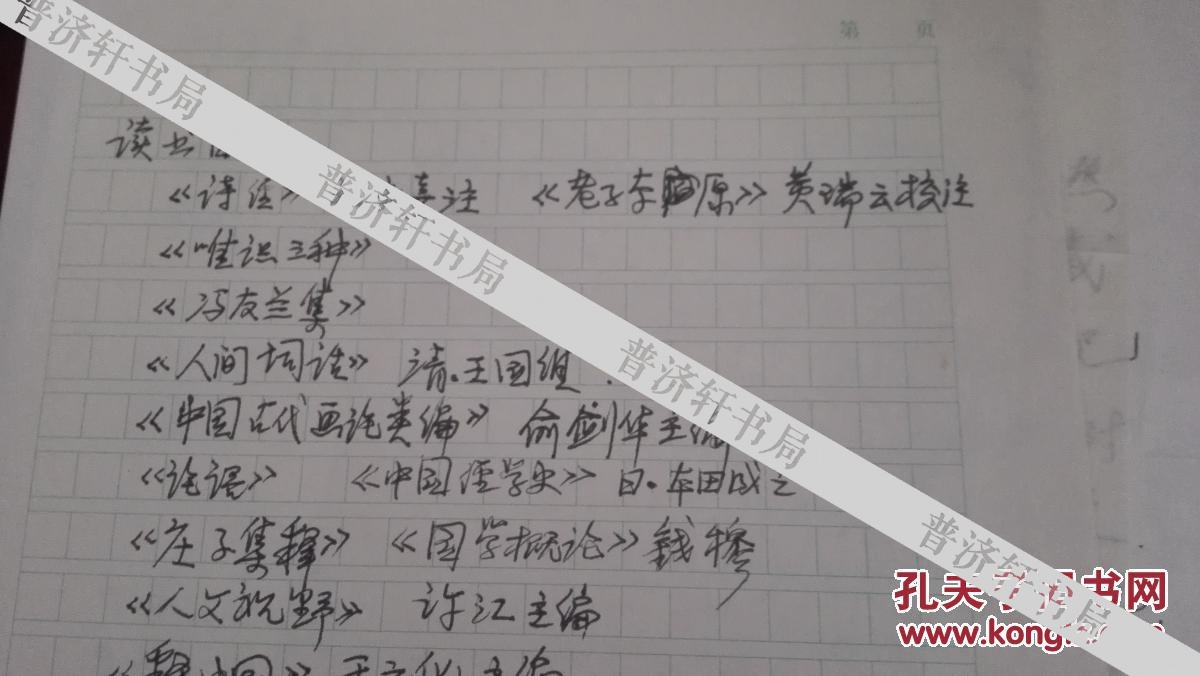 第 页
读书
《诗经》 熹注 《老子本原》 黄瑞云校注
《唯识三种》
《冯友兰集》
《人间词话》 清·王国维
《中国古代画论类编》 俞剑华主编
《论语》 《中国经学史》 日·本田成之
《庄子集释》 《国学概论》 钱穆
《人文视野》 许江主编
主编
普济轩书局
普济轩书局
普济轩书局
普济轩书局
孔夫子旧书网
www.kongfz.com